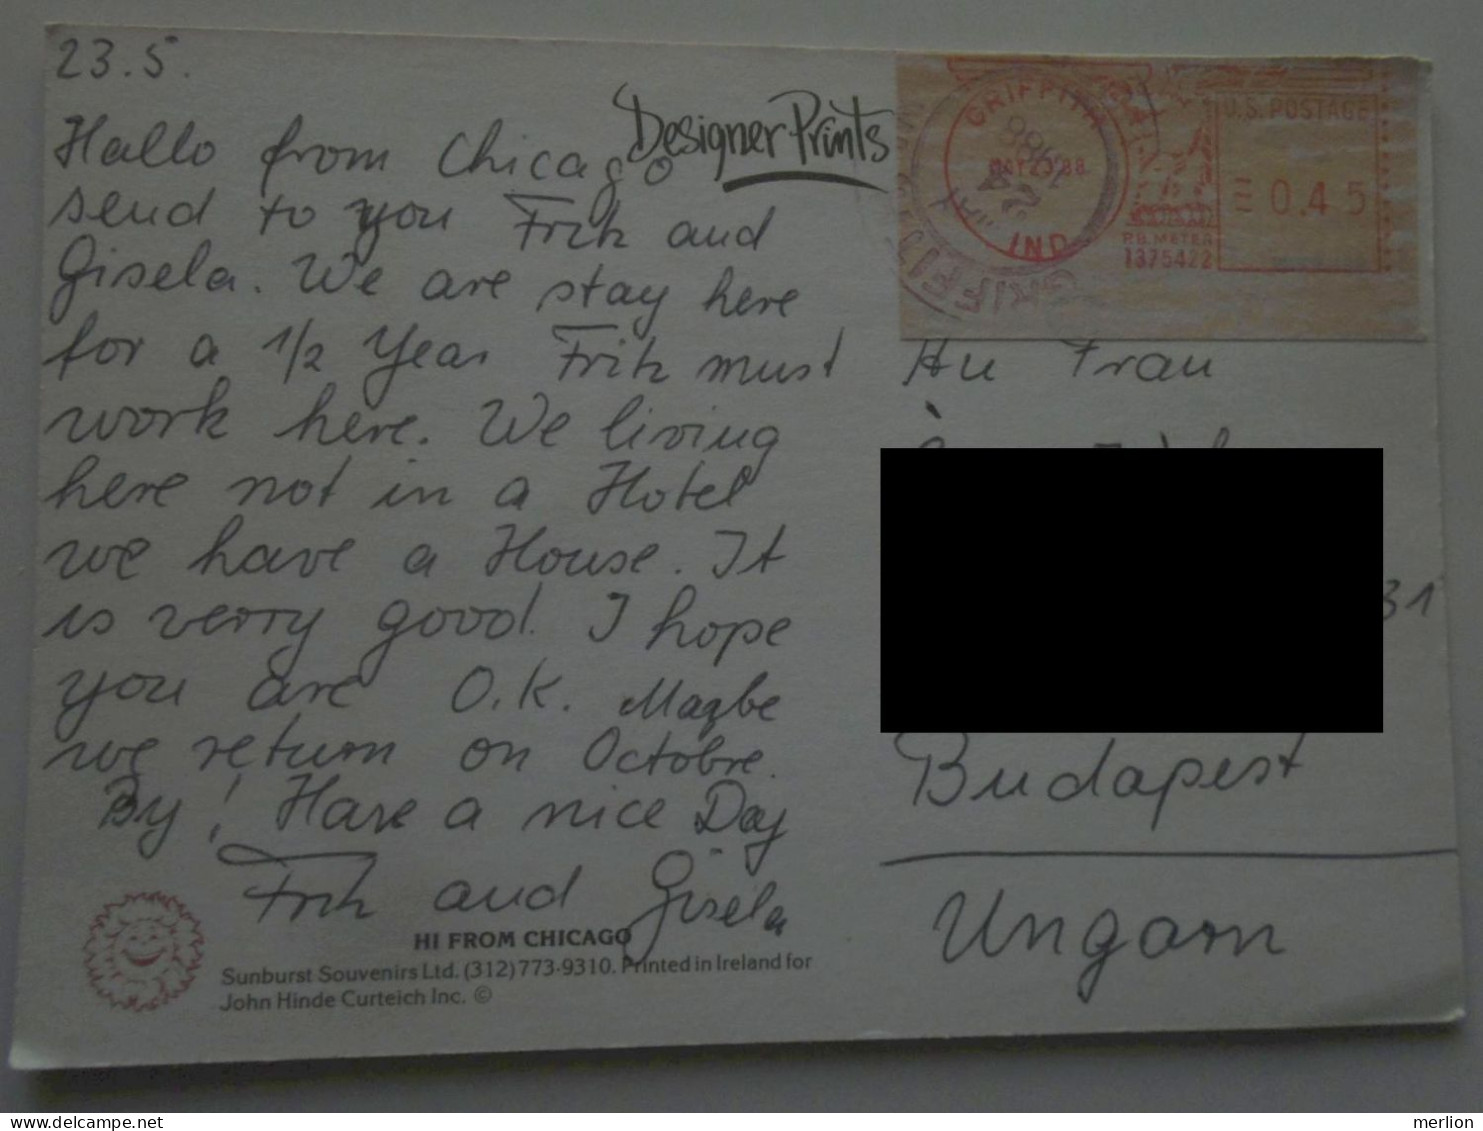 23.5.
Hallo from Chicago
send to you Fritz and
Gisela. We are stay here
for a 1/2 Year Fritz must
work here. We living
here not in a Hotel
we have a House. It
is verry good. I hope
you are O.K. Magbe
we return on Octobre.
By! Have a nice Day
Fritz and Gisela
HI FROM CHICAGO
Sunburst Souvenirs Ltd. (312) 773-9310. Printed in Ireland for
John Hinde Curteich Inc. ©
Designer Prints
GRIFFITH
IND
U.S. POSTAGE
0.45
P.B. METER
1375422
An Frau
31
Budapest
Ungarn
merlion